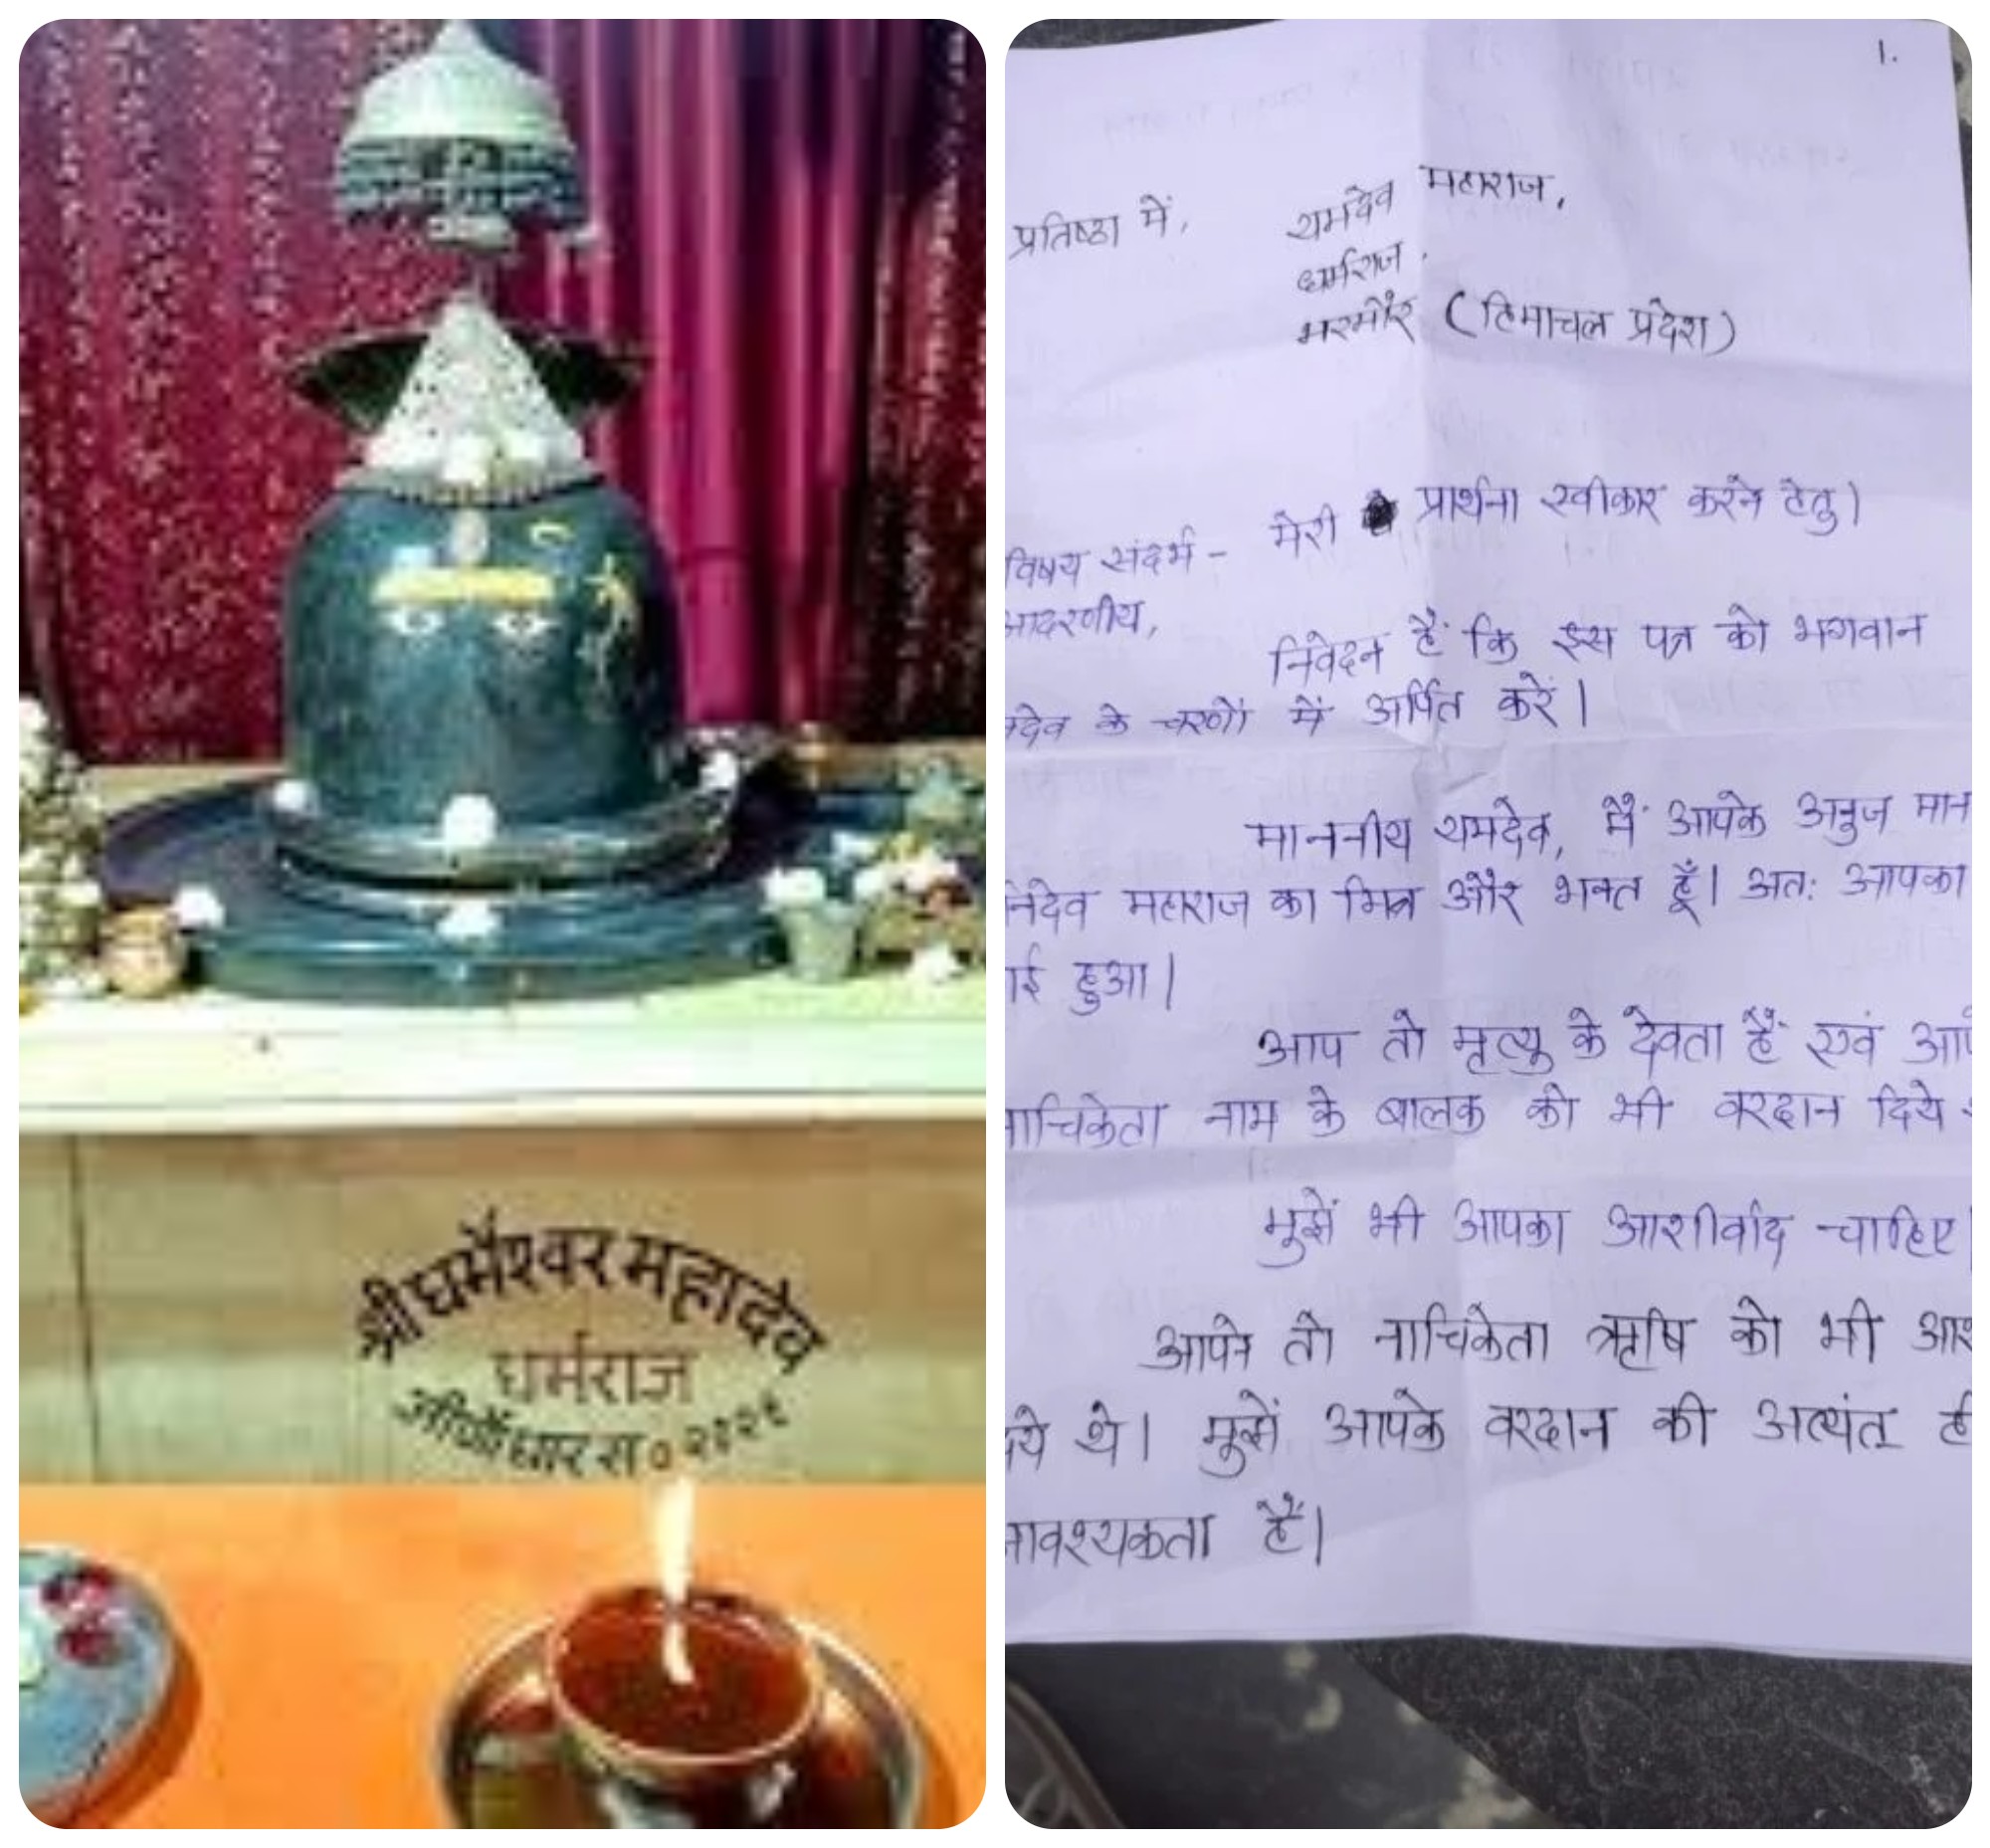 श्री धर्मेश्वर महादेव
धर्मराज
जीर्णोधार स० २
1.
प्रतिष्ठा में, यमदेव महाराज,
धर्मराज,
भरमौर (हिमाचल प्रदेश)
विषय संदर्भ - मेरी प्रार्थना स्वीकार करने हेतु।
आदरणीय,
निवेदन हैं कि इस पत्र को भगवान
देव के चरणों में अर्पित करें।
माननीय यमदेव, मैं आपके अनुज मान
निदेव महाराज का मित्र और भक्त हूँ। अतः आपका
ई हुआ।
आप तो मृत्यु के देवता हैं एवं आप
नाचिकेता नाम के बालक को भी वरदान दिये
मुझें भी आपका आशीर्वाद चाहिए।
आपने तो नाचिकेता ऋषि को भी आश
ये थे। मुझें आपके वरदान की अत्यंत ही
आवश्यकता हैं।